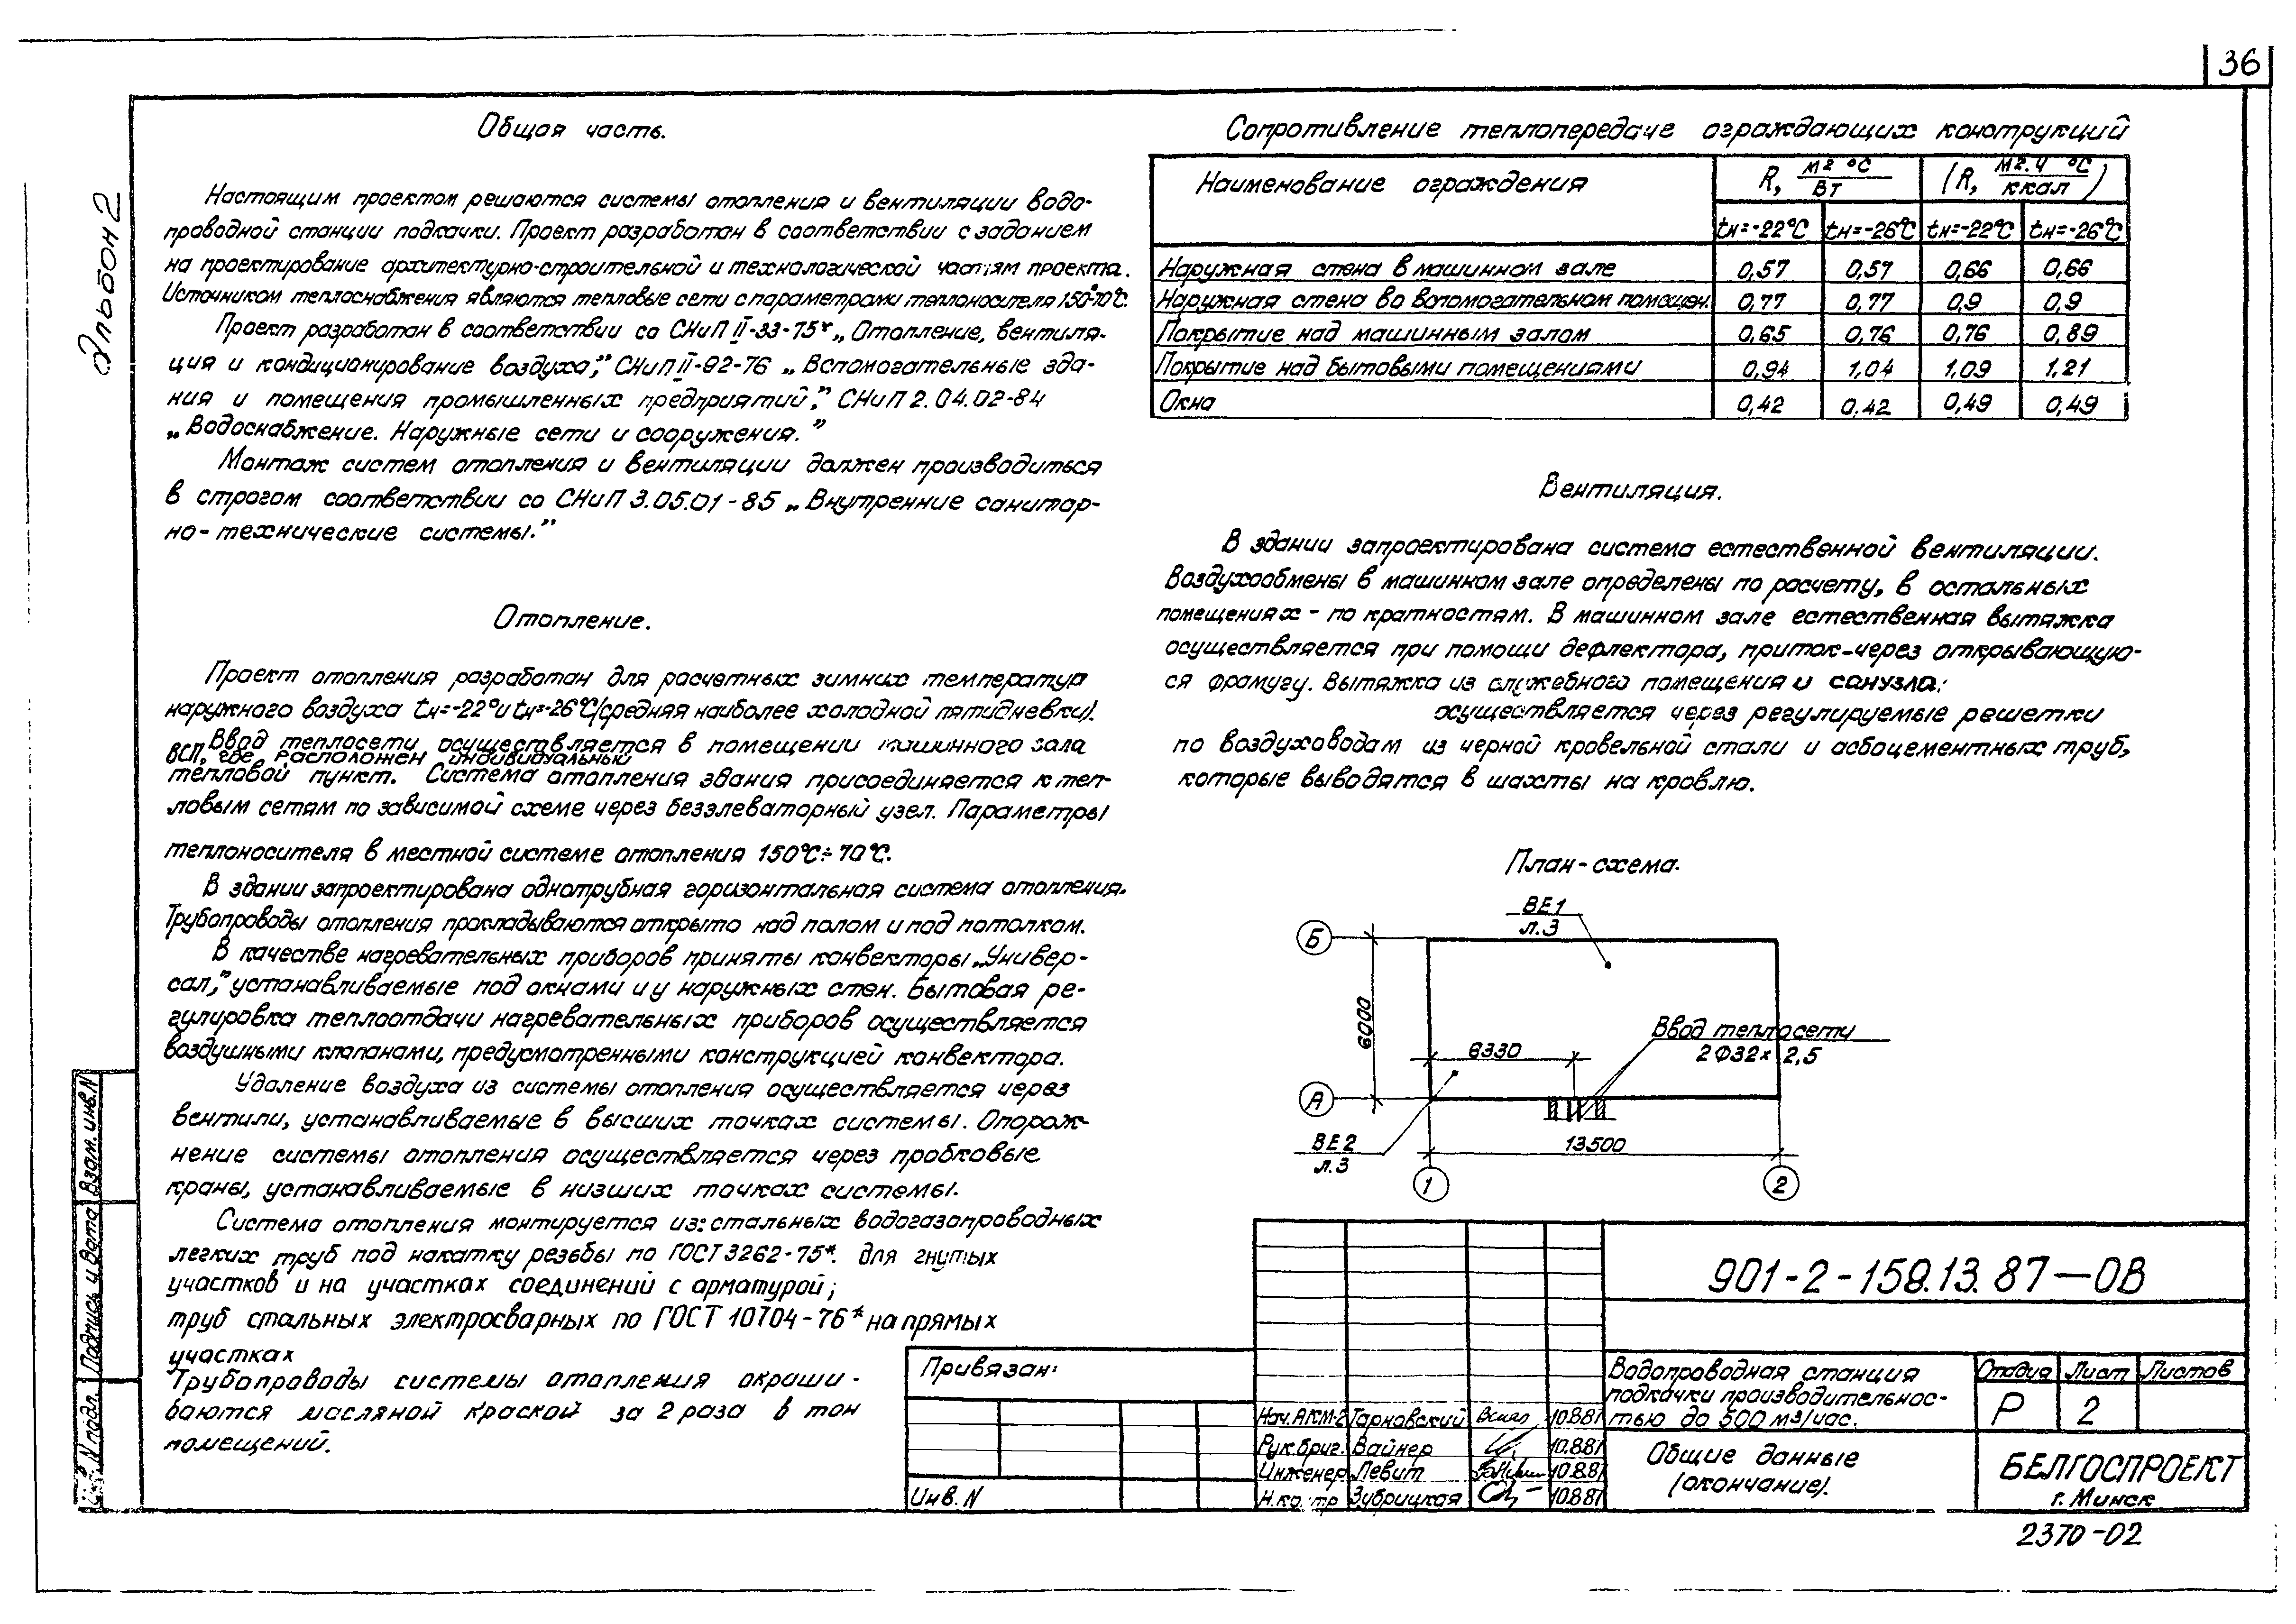 36
Альбом 2
Общая часть.
Настоящим проектом решаются системы отопления и вентиляции водо-
проводной станции подкачки. Проект разработан в соответствии с заданием
на проектирование архитектурно-строительной и технологической частям проекта.
Источником теплоснабжения являются тепловые сети с параметрами теплоносителя 150°-70°С.
Проект разработан в соответствии со СНиП II-33-75* „Отопление, вентиля-
ция и кондиционирование воздуха”, СНиП II-92-76 „Вспомогательные зда-
ния и помещения промышленных предприятий”, СНиП 2.04.02-84
„Водоснабжение. Наружные сети и сооружения.”
Монтаж систем отопления и вентиляции должен производиться
в строгом соответствии со СНиП 3.05.01-85 „Внутренние санитар-
но-технические системы.”
Отопление.
Проект отопления разработан для расчетных зимних температур
наружного воздуха tн=-22° и tн=-26°С (средняя наиболее холодной пятидневки).
Ввод теплосети осуществляется в помещении машинного зала
ВСП, где расположен индивидуальный
тепловой пункт. Система отопления здания присоединяется к теп-
ловым сетям по зависимой схеме через безэлеваторный узел. Параметры
теплоносителя в местной системе отопления 150°С÷70°С.
В здании запроектирована однотрубная горизонтальная система отопления.
Трубопроводы отопления прокладываются открыто над полом и под потолком.
В качестве нагревательных приборов приняты конвекторы „Универ-
сал”, устанавливаемые под окнами и у наружных стен. Бытовая ре-
гулировка теплоотдачи нагревательных приборов осуществляется
воздушными клапанами, предусмотренными конструкцией конвектора.
Удаление воздуха из системы отопления осуществляется через
вентили, устанавливаемые в высших точках системы. Опорож-
нение системы отопления осуществляется через пробковые
краны, устанавливаемые в низших точках системы.
Система отопления монтируется из: стальных водогазопроводных
легких труб под накатку резьбы по ГОСТ 3262-75*. для гнутых
участков и на участках соединений с арматурой;
труб стальных электросварных по ГОСТ 10704-76* на прямых
участках
Трубопроводы системы отопления окраши-
ваются масляной краской за 2 раза в тон
помещений.
Сопротивление теплопередаче ограждающих конструкций
Наименование ограждения R, м2 °С/Вт (R, м2.ч °С/ккал)
tн=-22°С tн=-26°С tн=-22°С tн=-26°С
Наружная стена в машинном зале 0,57 0,57 0,66 0,66
Наружная стена во вспомогательном помещен. 0,77 0,77 0,9 0,9
Покрытие над машинным залом 0,65 0,76 0,76 0,89
Покрытие над бытовыми помещениями 0,94 1,04 1,09 1,21
Окна 0,42 0,42 0,49 0,49
Вентиляция.
В здании запроектирована система естественной вентиляции.
Воздухообмены в машинном зале определены по расчету, в остальных
помещениях - по кратностям. В машинном зале естественная вытяжка
осуществляется при помощи дефлектора, приток-через открывающую-
ся фрамугу. Вытяжка из служебного помещения и санузла:
осуществляется через регулируемые решетки
по воздуховодам из черной кровельной стали и асбоцементных труб,
которые выводятся в шахты на кровлю.
План-схема.
ВЕ1
л.3
Б
6000
6330
Ввод теплосети
2Ф32х2,5
А
ВЕ2
л.3
13500
1
2
901-2-158.13.87-ОВ
Привязан:
Инв. N
Водопроводная станция
подкачки производительнос-
тью до 500 м³/час.
Стадия Лист Листов
Р 2
Нач. АКМ-2 Тарновский 10.881
Рук. бриг. Вайнер 10.881
Инженер Левит 10.881
Н. контр Зубрицкая 10.881
Общие данные
(окончание).
БЕЛГОСПРОЕКТ
г. Минск
2370-02
Взам. инв. N
Подпись и дата
N подл.